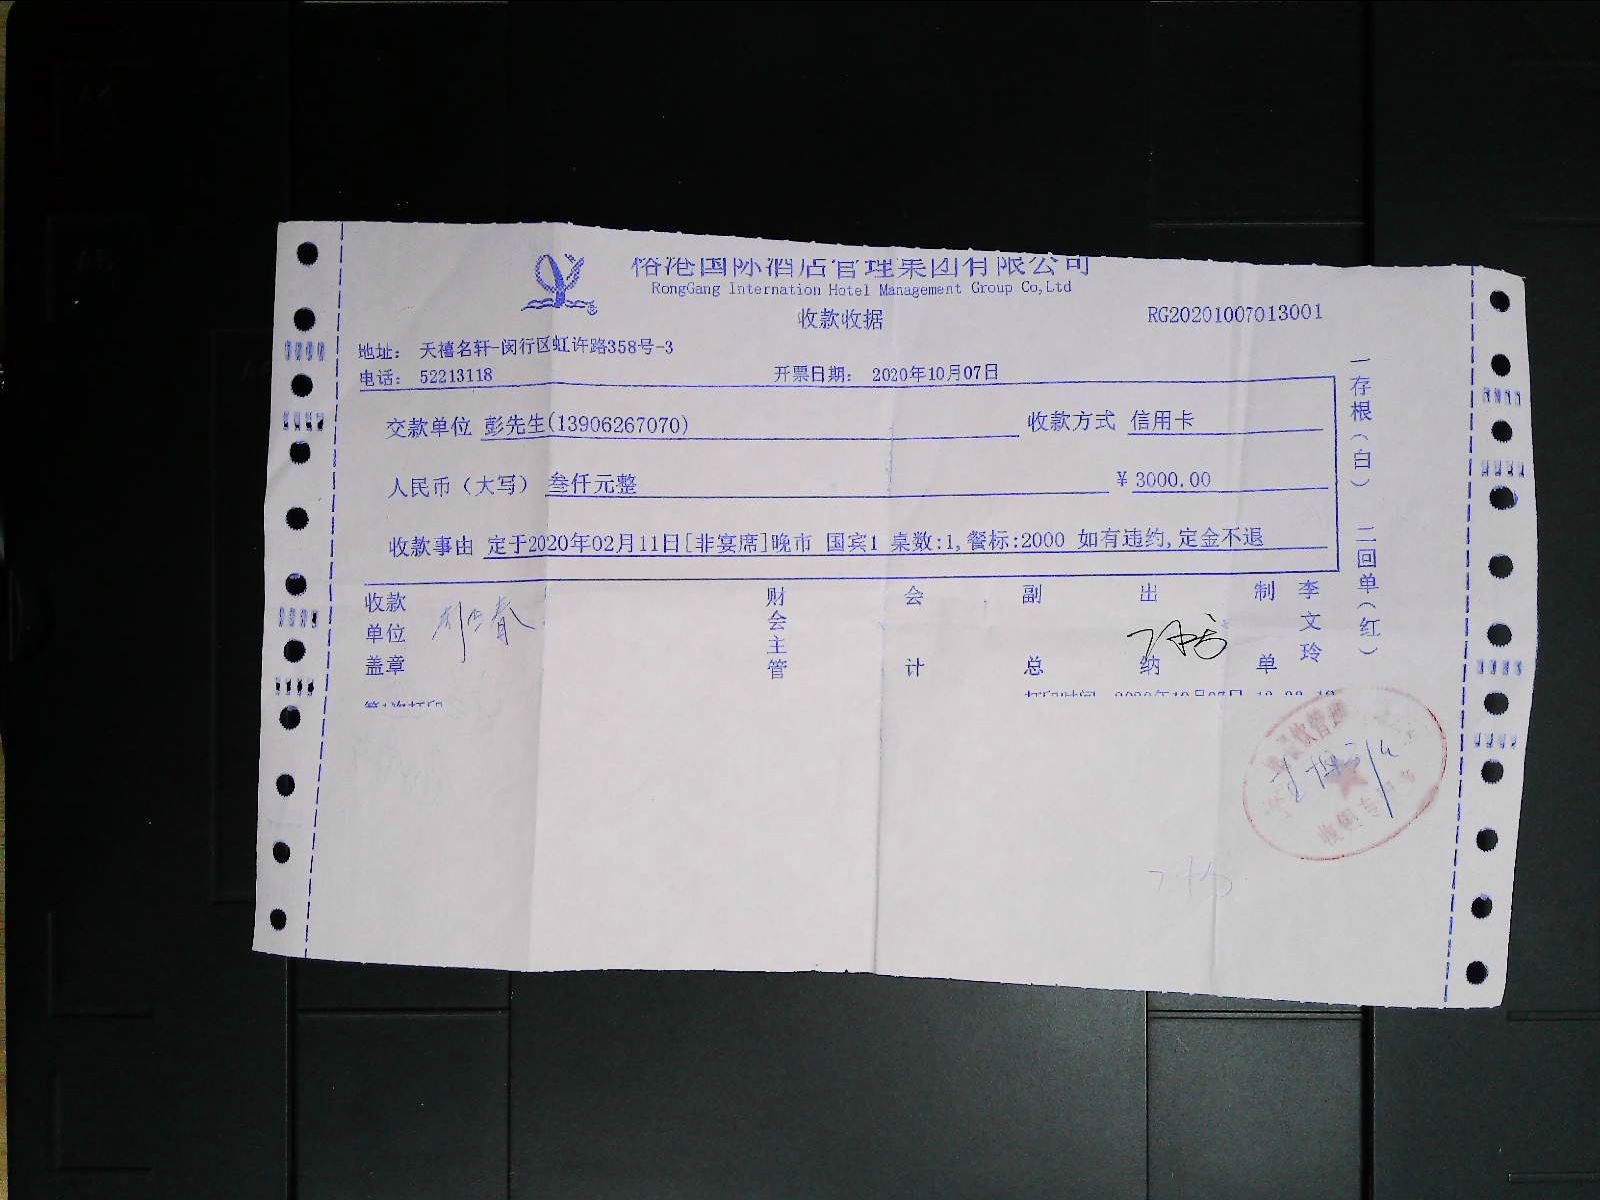 榕港国际酒店管理集团有限公司
RongGang Internation Hotel Management Group Co,Ltd
收款收据
RG20201007013001
地址： 天禧名轩-闵行区虹许路358号-3
电话： 52213118 开票日期： 2020年10月07日
交款单位 彭先生(13906267070) 收款方式 信用卡
人民币（大写） 叁仟元整 ¥ 3000.00
收款事由 定于2020年02月11日[非宴席]晚市 国宾1 桌数:1,餐标:2000 如有违约,定金不退
收款单位盖章 财会主管 会计 副总 出纳 制单 李文玲
第1次打印 打印时间 2020年10月07日
一存根（白） 二回单（红）